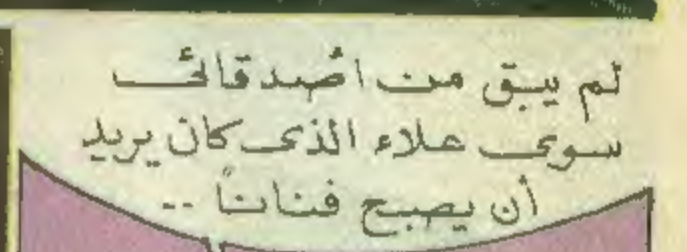 لم يبق من أصدقائى
سوى علاء الذى كان يريد
أن يصبح فناناً --